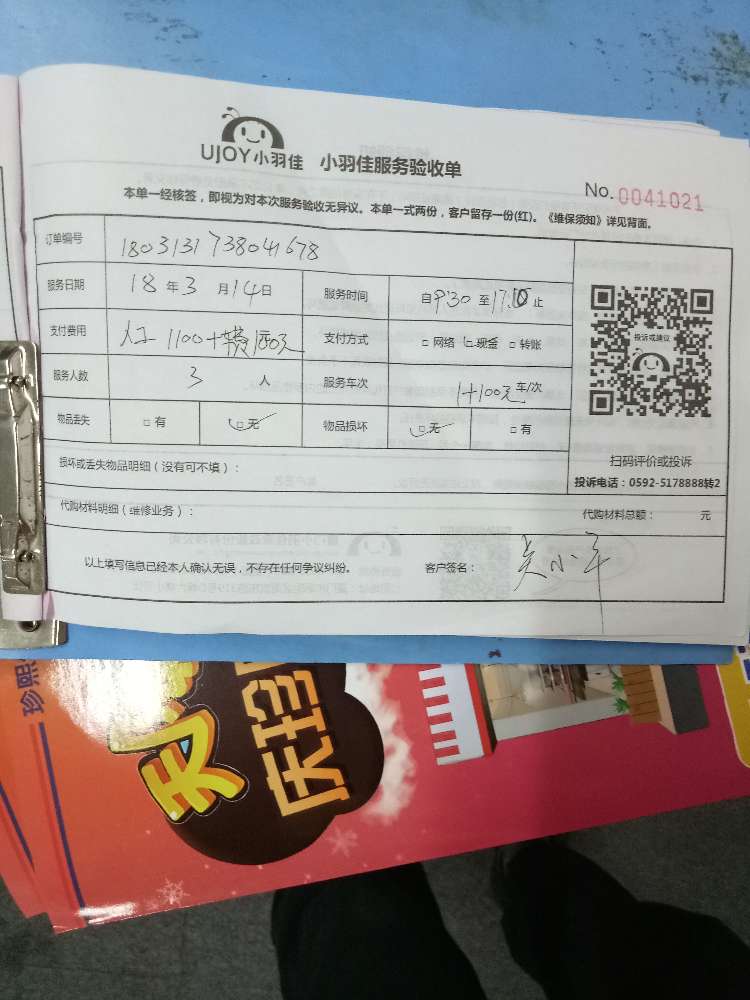 UJOY小羽佳 小羽佳服务验收单
No. 0041021
本单一经核签，即视为对本次服务验收无异议。本单一式两份，客户留存一份(红)。《维保须知》详见背面。
订单编号 1803131738041678
服务日期 18 年 3 月 14 日 服务时间 自 9:30 至 17:10 止
支付费用 人工 1100+ 支付方式 □ 网络 ☑ 现金 □ 转账
服务人数 3 人 服务车次 1+100元 车/次
物品丢失 □ 有 ☑ 无 物品损坏 ☑ 无 □ 有
投诉或建议
扫码评价或投诉
投诉电话：0592-5178888转2
损坏或丢失物品明细（没有可不填）：
代购材料明细（维修业务）： 代购材料总额： 元
以上填写信息已经本人确认无误，不存在任何争议纠纷。 客户签名：
珍熙
庆珍